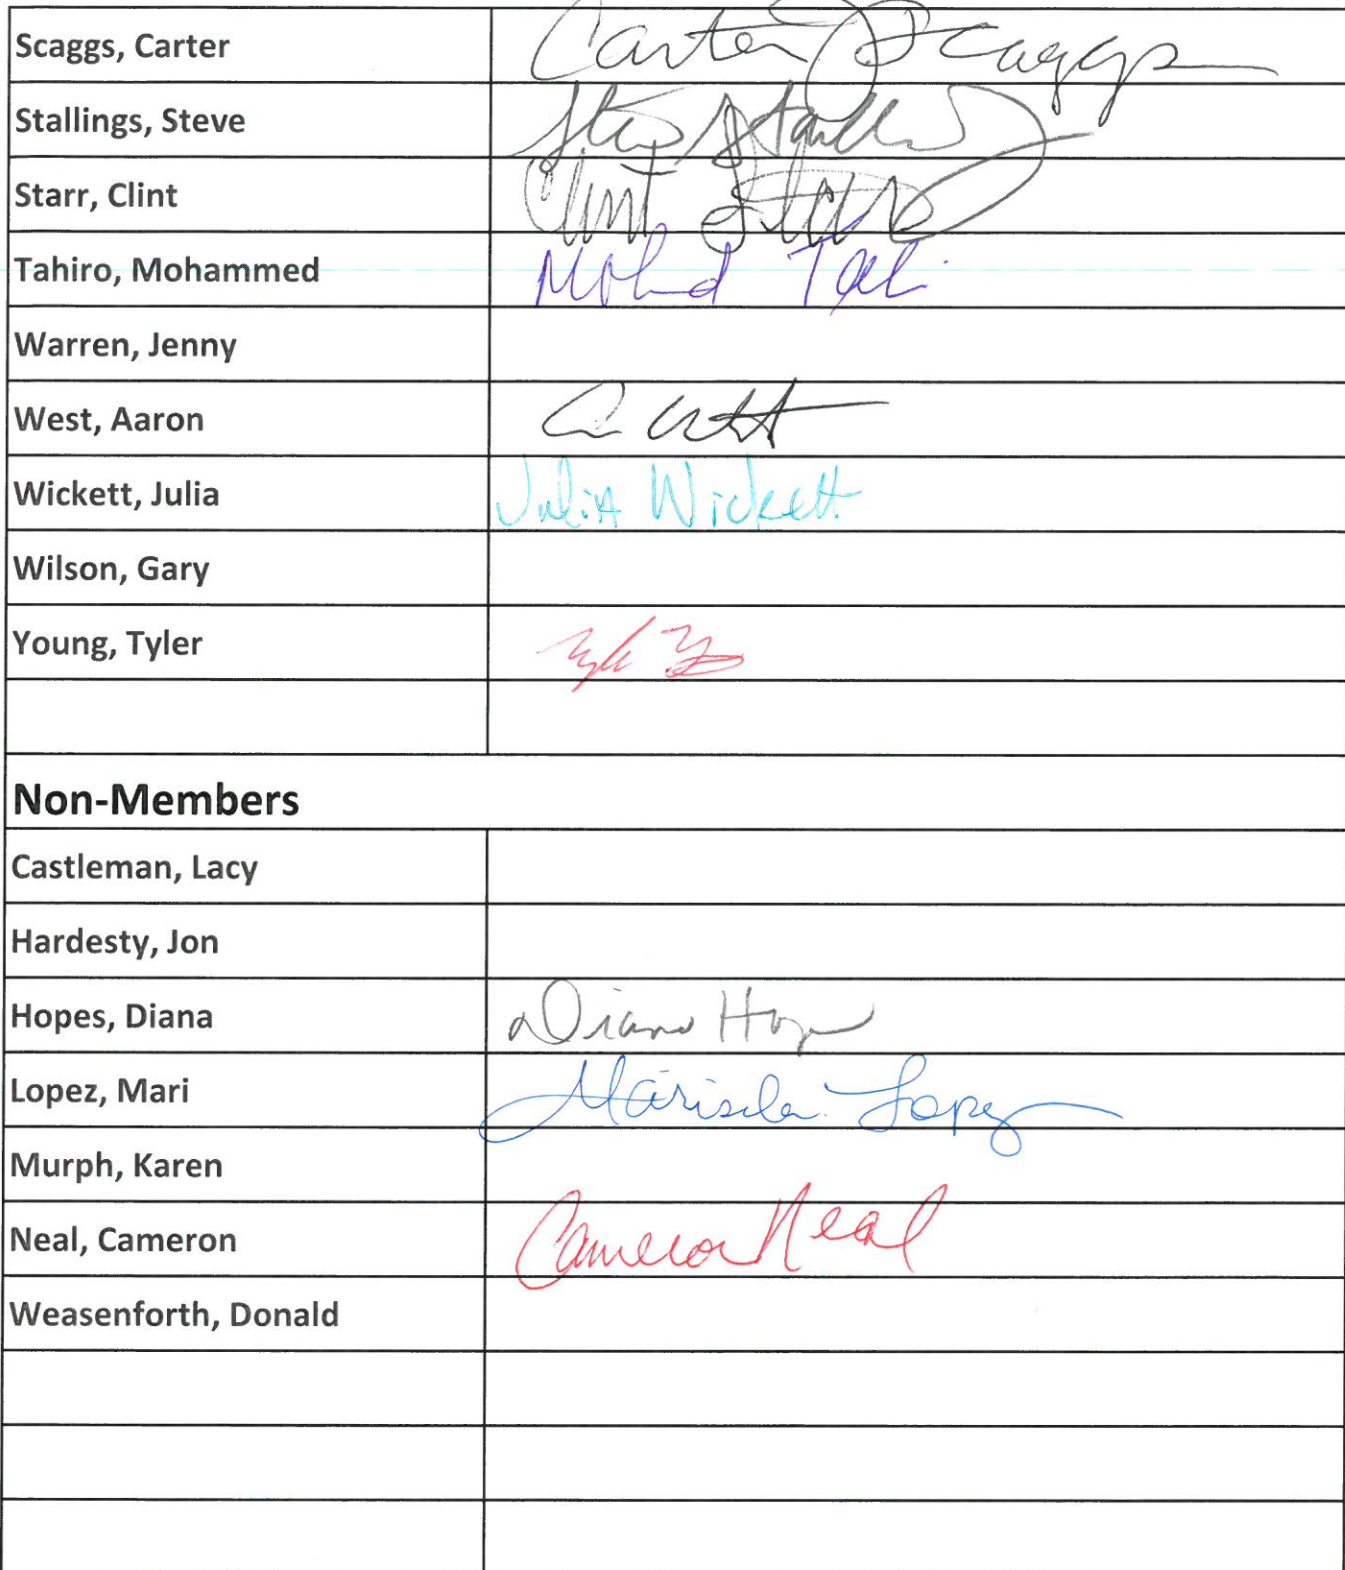 Scaggs, Carter Carter J Scaggs
Stallings, Steve
Starr, Clint Clint Starr
Tahiro, Mohammed Mohd
Warren, Jenny
West, Aaron
Wickett, Julia Julia Wickett
Wilson, Gary
Young, Tyler
Non-Members
Castleman, Lacy
Hardesty, Jon
Hopes, Diana Diana
Lopez, Mari Marisela Lopez
Murph, Karen
Neal, Cameron Cameron Neal
Weasenforth, Donald